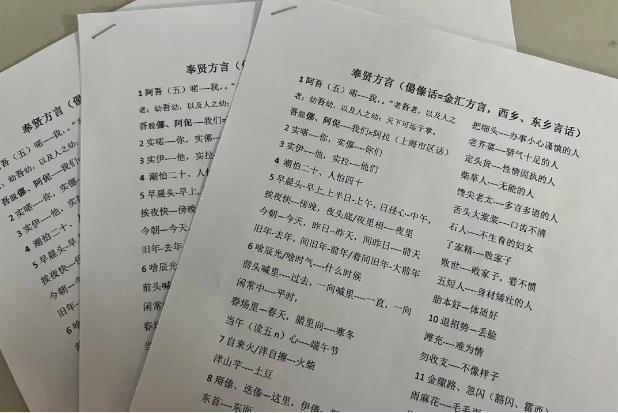 奉贤方言（偒傣话=金汇方言，西乡、东乡言话）
1 阿吾（五）喏----我，。“老吾老，以及人之
老；幼吾幼，以及人之幼；天下可运于掌。
吾脸㑚、阿伲----我们=阿拉（上海市区话）
2 实喏----你，实㑚----你们
3 实伊---他，实拉----他们
4 潮怕二十、人怕四十
5 早晨头-早上,上半日-上午,日昼心-中午,
挨夜快—傍晚，夜头底/夜里相---夜里
今朝—今天，昨日--昨天，间昨日---前天
旧年-去年，间旧年-前年/着间旧年-大前年
6 啥辰光/啥时气----什么时候
前头喊里----过去，一向喊里----一直，一向
闲常中----平时，
春场里—春天，腊里向----寒冬
当午（读五 n）心----端午节
7 自来火/洋自擦---火柴
洋山芋----土豆
东首---东面
把细头----办事小心谨慎的人
老芥菜---骄气十足的人
定头货---性情固执的人
柴草人---无能的人
馋尖老太---多言多语的人
舌头大浆浆---口齿不清
石人---不生育的妇女
了家精---败家子
败世---败家子，看不惯
五短人---身材矮壮的人
胎本好—体质好
10 退招势—丢脸
滩充---难为情
勿收支----不像样子
奉贤方言（
1 阿吾（五）喏----我，。“
老；幼吾幼，以及人之幼；
吾脸㑚、阿伲----我们=
2 实喏----你，实㑚
3 实伊---他，实拉
4 潮怕二十、人
5 早晨头-早
挨夜快—
今朝—今
旧年-去
6 啥辰
前头
闲常
春
当
奉贤方言（
吾（五）喏----我，。“
吾幼，以及人之
㑚、阿伲----
2 实喏----你
3 实伊---他
4 潮怕二
5 早晨头
挨夜快
今朝—
旧年
6